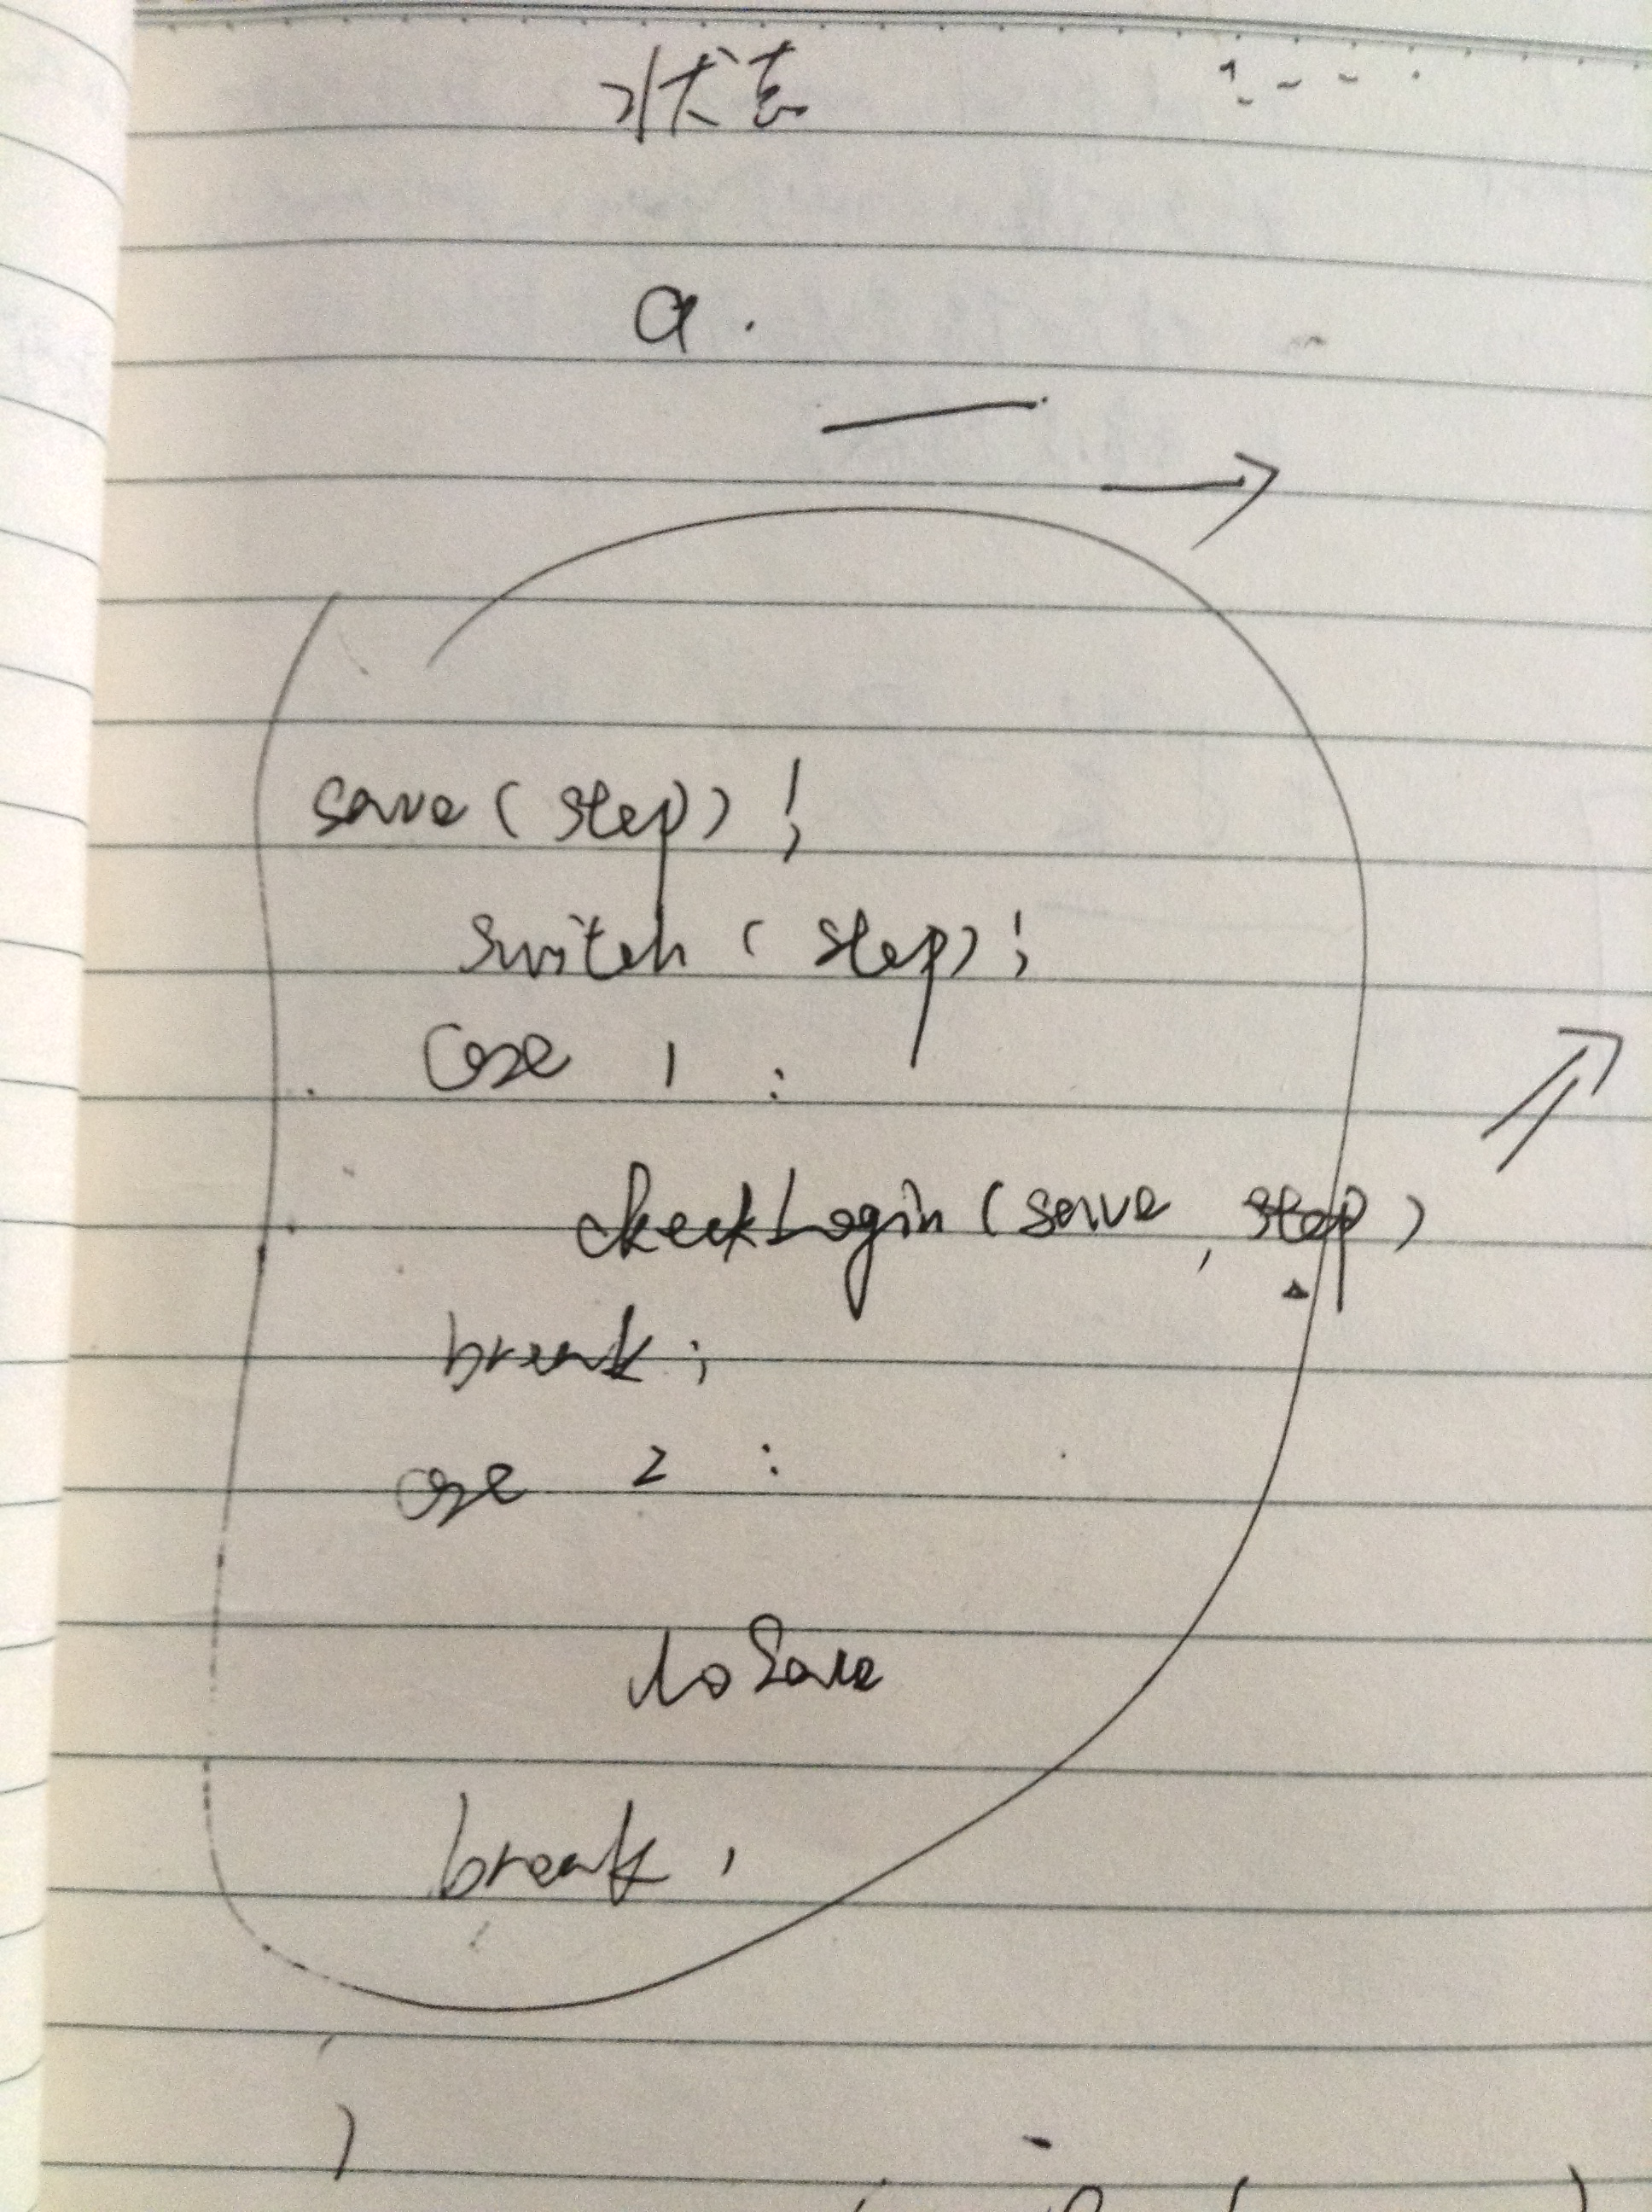 状态
a.
save(step);
switch(step);
case 1:
checkLogin(save, step)
break;
case 2:
doSave
break;